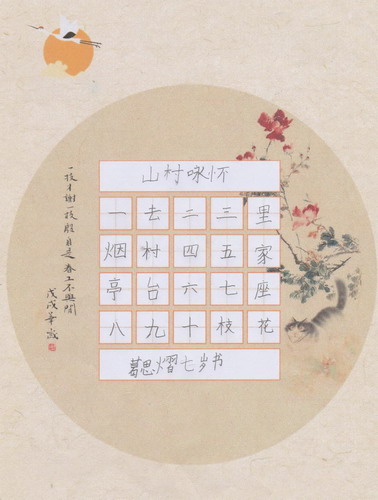 山村咏怀
一去二三里
烟村四五家
亭台六七座
八九十枝花
葛思熠七岁书
一枝才謝一枝殷自是春工不與閒
戊戌